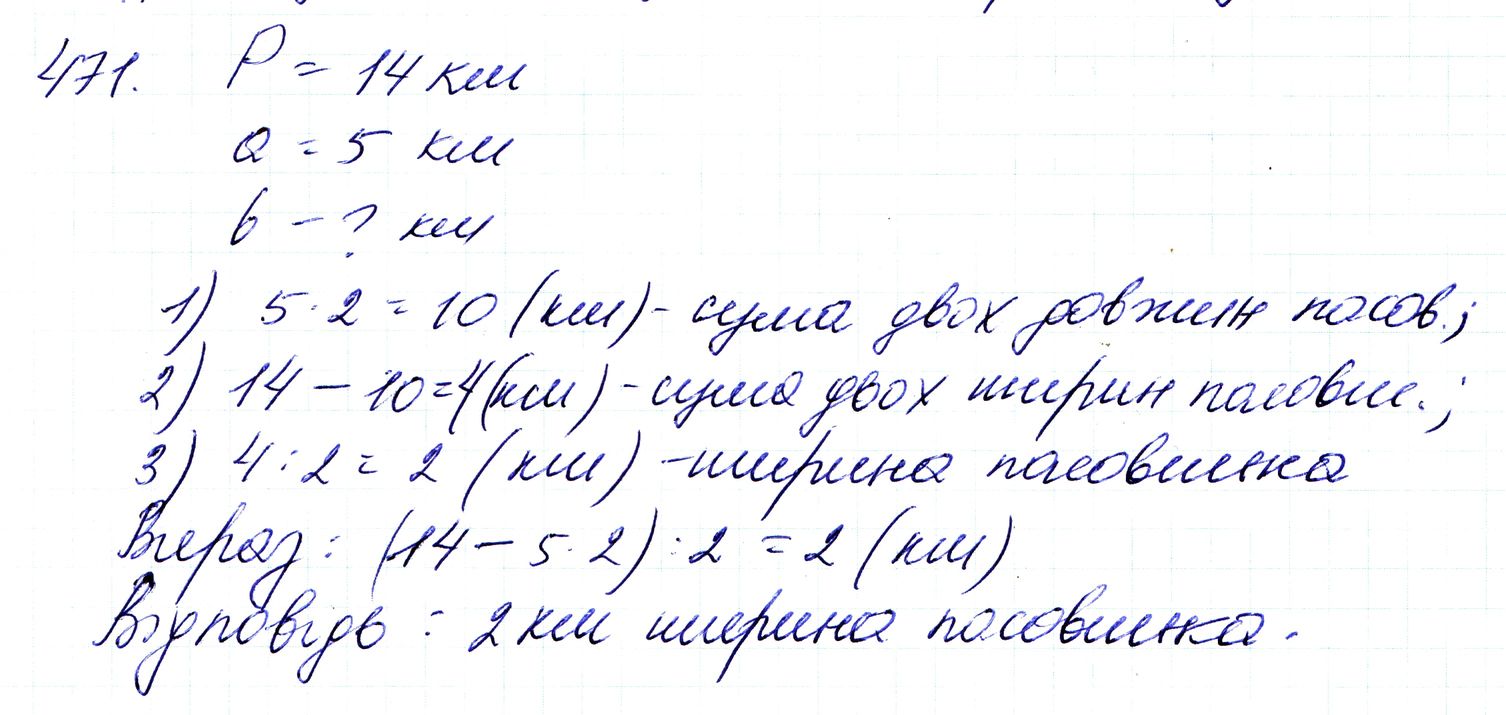 471. P = 14 км
a = 5 км
b - ? км
1) 5·2 = 10 (км) - сума двох довжин пасов.;
2) 14 - 10 = 4 (км) - сума двох ширин пасовищ.;
3) 4 : 2 = 2 (км) - ширина пасовиська
Вираз: (14 - 5·2) : 2 = 2 (км)
Відповідь: 2 км ширина пасовиська.